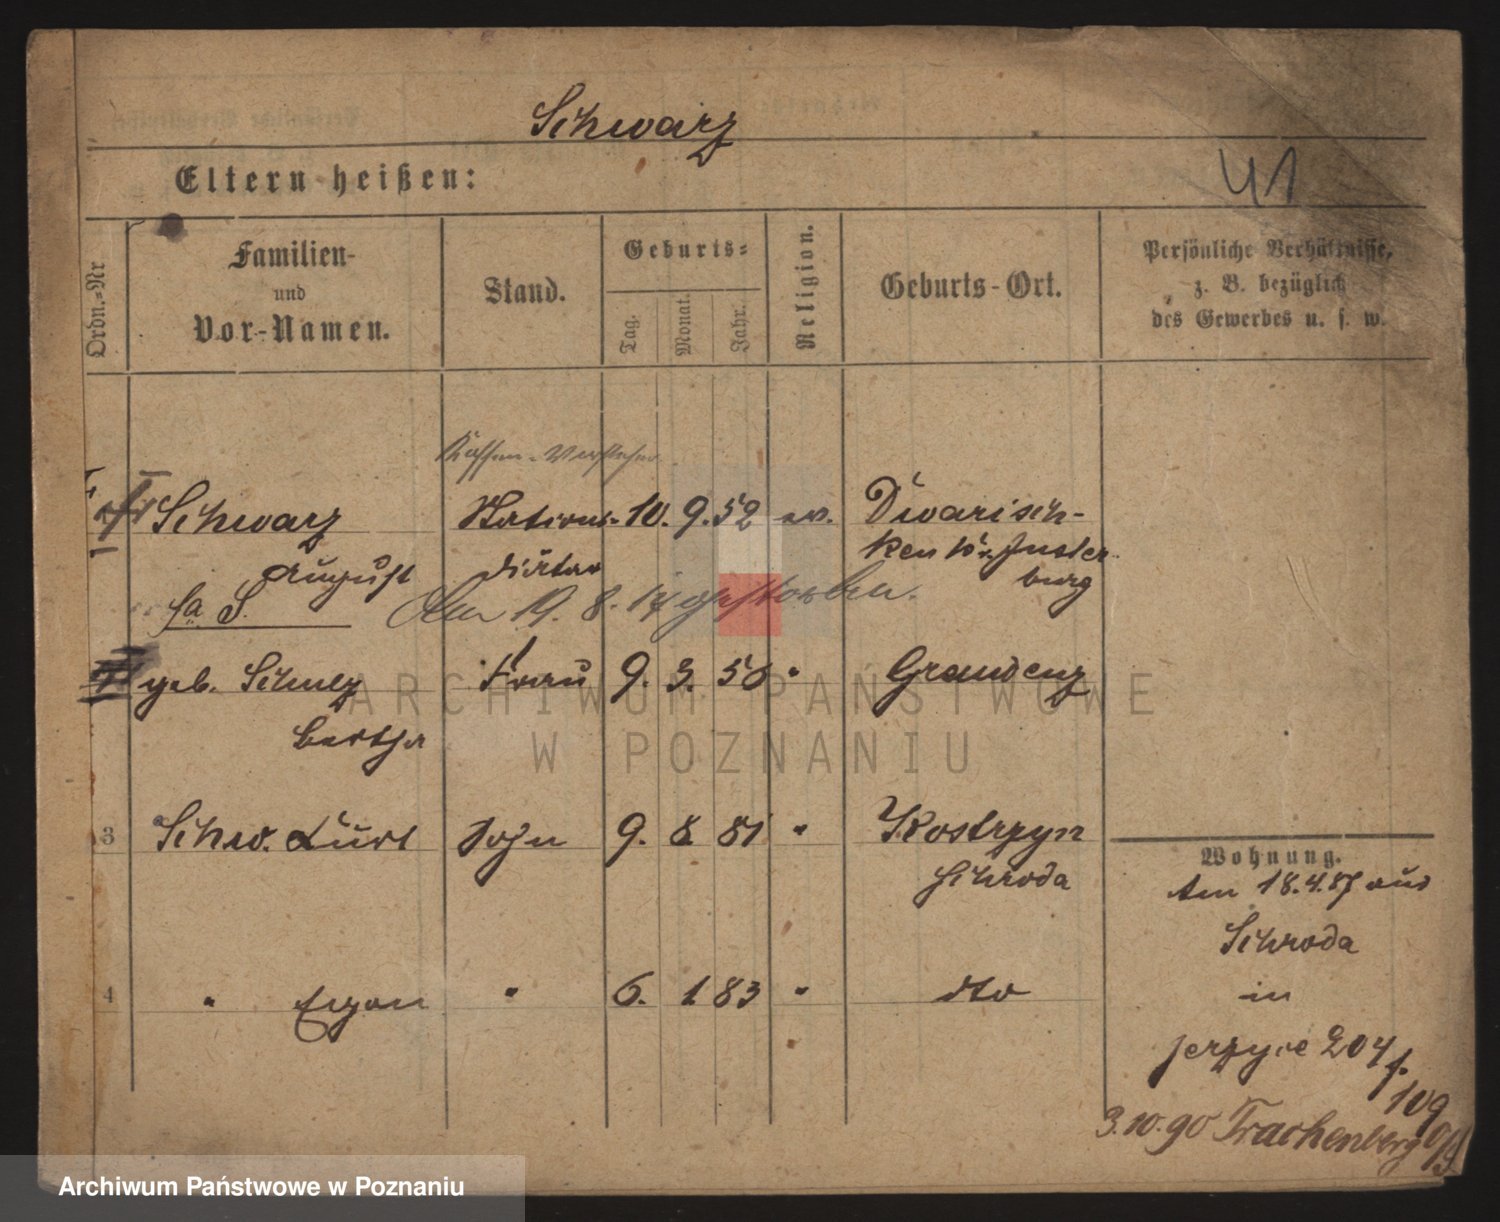 Schwarz
Eltern heißen:
41
Ordn.=Nr
Familien-
und
Vor-Namen.
Stand.
Geburts=
Tag.
Monat.
Jahr.
Religion.
Geburts-Ort.
Persönliche Verhältnisse,
z. B. bezüglich
des Gewerbes u. s. w.
Kassen-Vorsteher
Schwarz Stations- 10. 9. 52 ev. Dwarisch-
August Diätar ken Kr. Inster
burg
S. Am 19. 8. 14 gestorben.
geb. Schulz Frau 9. 3. 56 " Graudenz
Bertha
3 Schw. Kurt Sohn 9. 8. 81 " Kostrzyn
Schroda
4 " Egon " 6. 1 83 " dto
Wohnung.
Am 18.4.87 aus
Schroda
in
Jerzyce 204
109
3.10.90 Trachenberg
ARCHIWUM PAŃSTWOWE
W POZNANIU
Archiwum Państwowe w Poznaniu